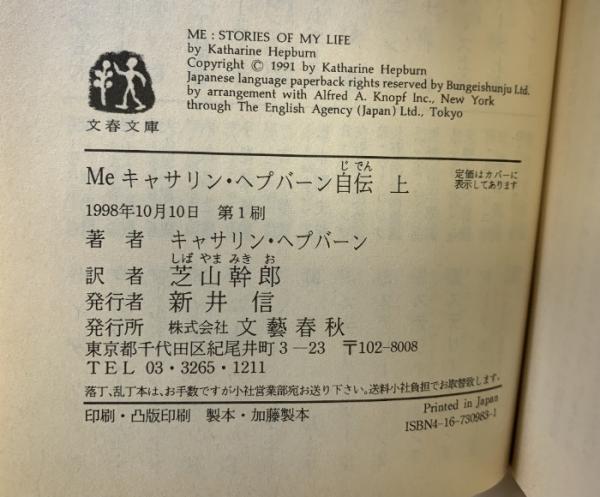 ME : STORIES OF MY LIFE
by Katharine Hepburn
Copyright © 1991 by Katharine Hepburn
Japanese language paperback rights reserved by Bungeishunju Ltd.
by arrangement with Alfred A. Knopf Inc., New York
through The English Agency (Japan) Ltd., Tokyo
文春文庫
じ でん
Me キャサリン・ヘプバーン自伝 上
定価はカバーに
表示してあります
1998年10月10日 第1刷
著 者 キャサリン・ヘプバーン
しば やま みき お
訳 者 芝山幹郎
発行者 新井 信
発行所 株式会社 文藝春秋
東京都千代田区紀尾井町3—23 〒102-8008
TEL 03・3265・1211
落丁、乱丁本は、お手数ですが小社営業部宛お送り下さい。送料小社負担でお取替致します。
印刷・凸版印刷 製本・加藤製本
Printed in Japan
ISBN4-16-730983-1